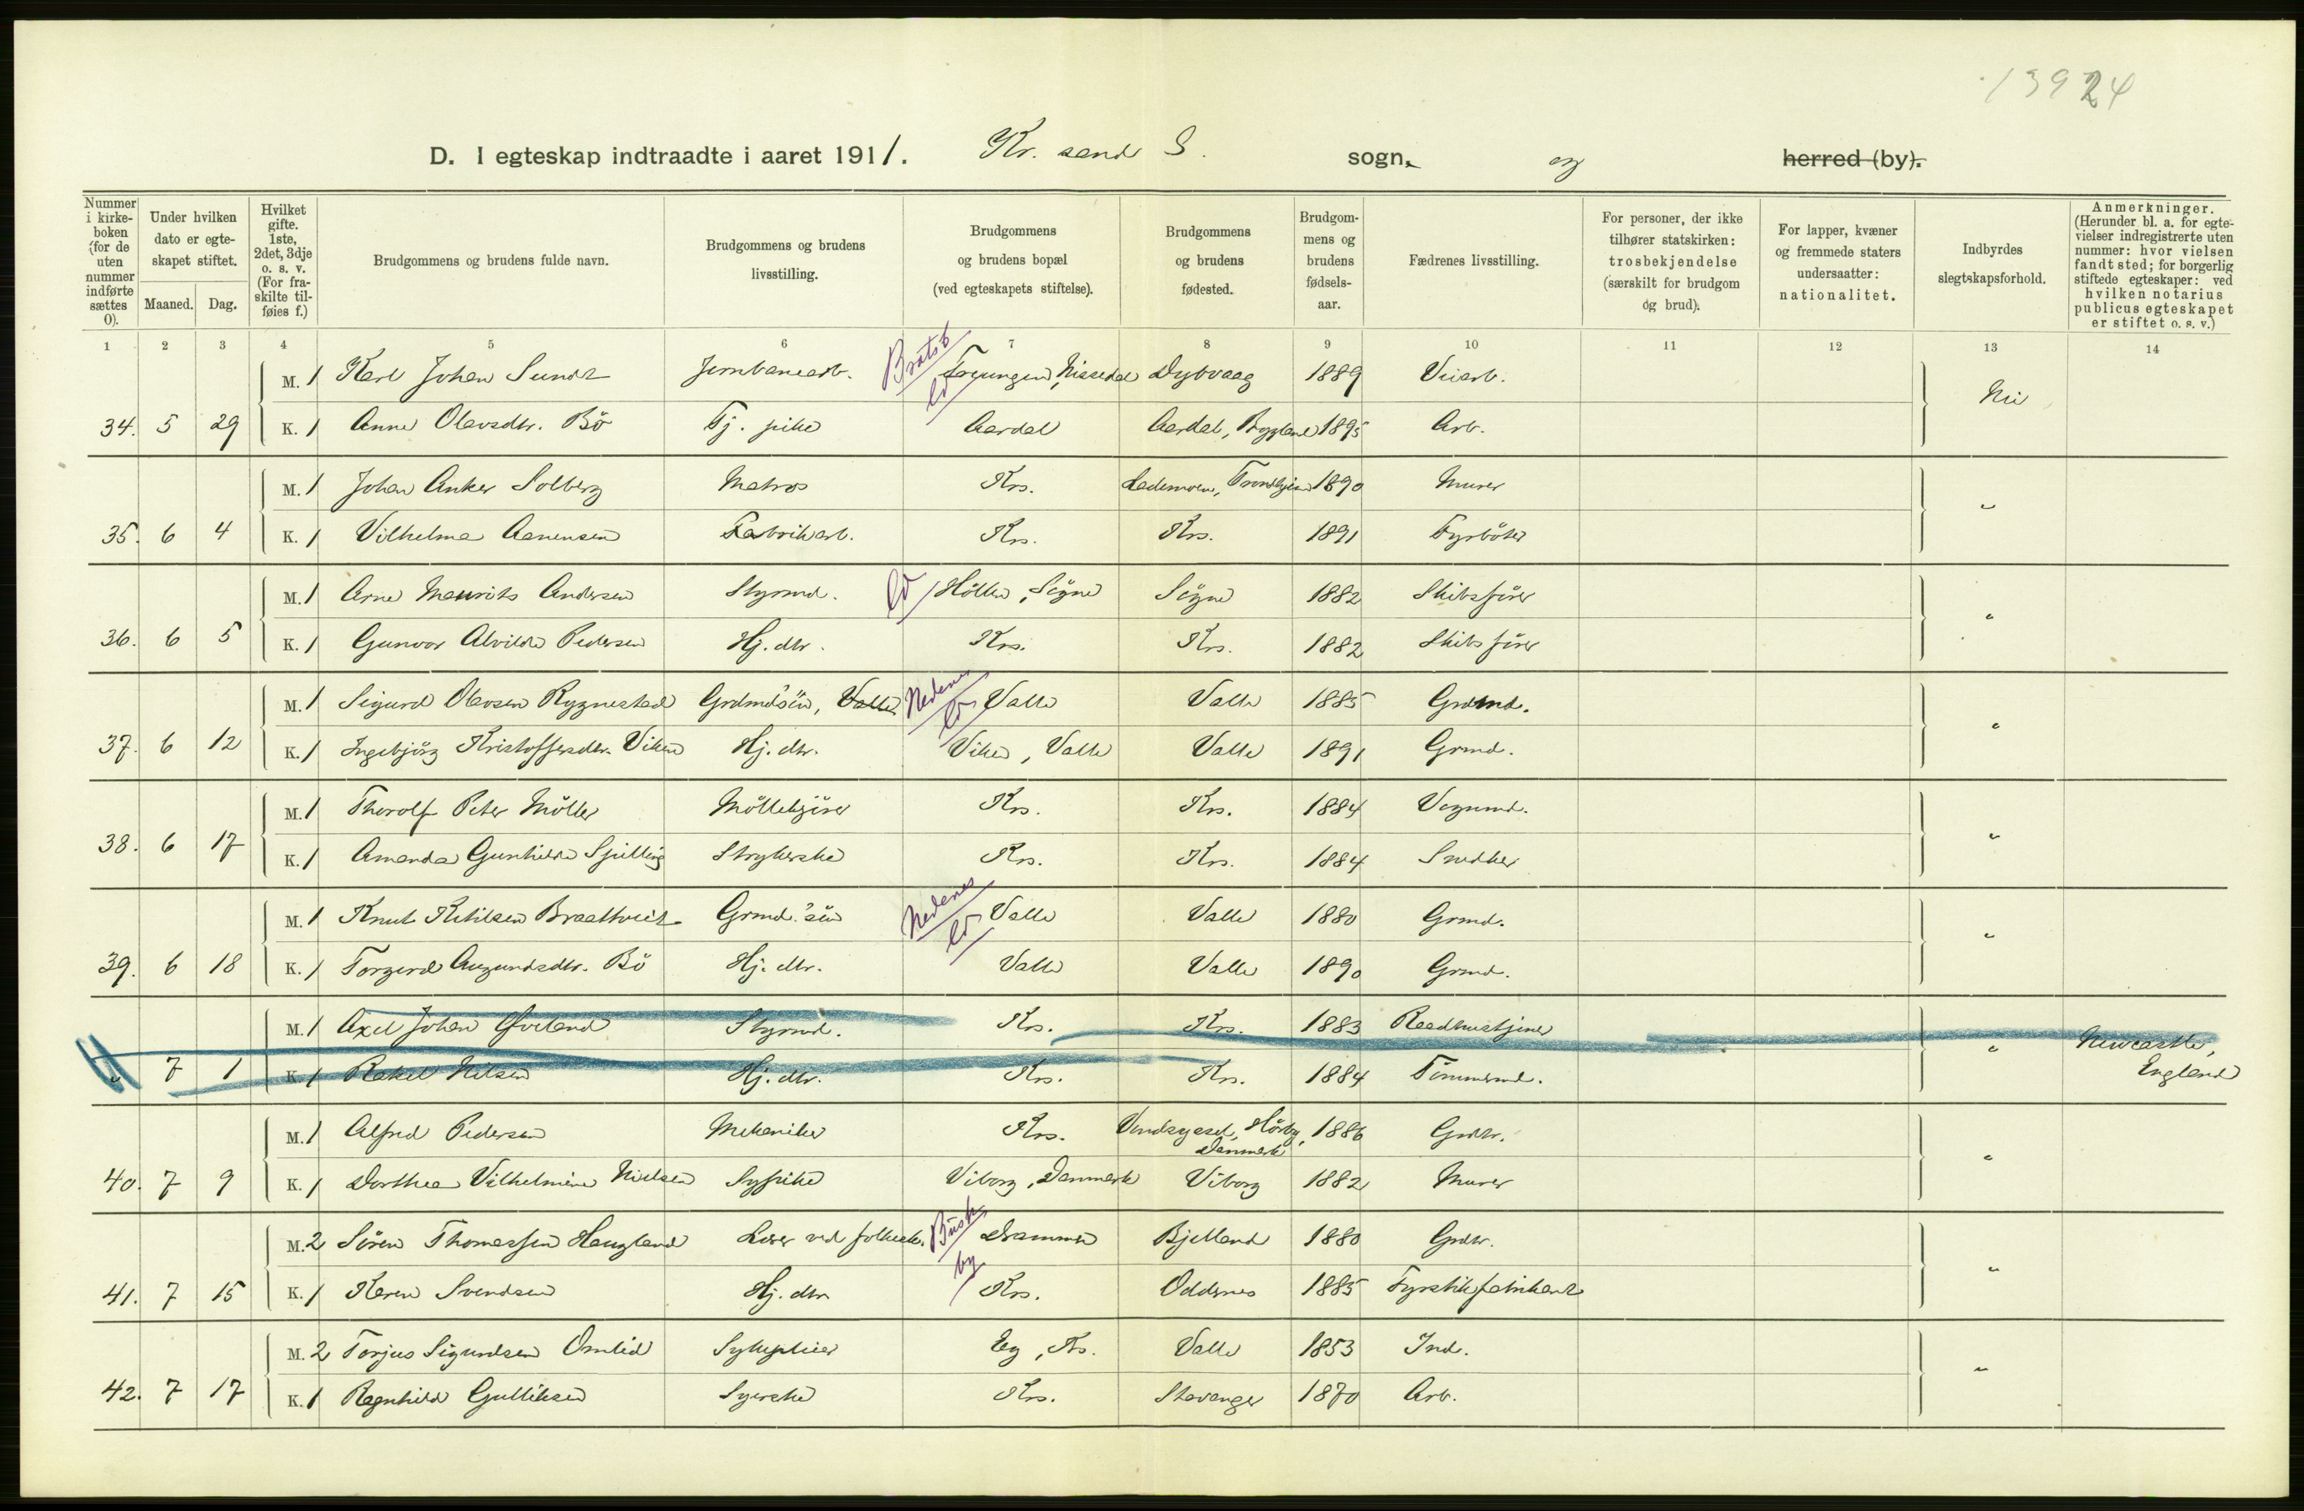 13924
D. I egteskap indtraadte i aaret 1911. Kr. sand S. sogn. og herred (by).
Nummer i kirkeboken (for de uten nummer indførte sættes 0).
Under hvilken dato er egteskapet stiftet.
Maaned. Dag.
Hvilket gifte. 1ste, 2det, 3dje o. s. v. (For fraskilte tilføies f.)
Brudgommens og brudens fulde navn.
Brudgommens og brudens livsstilling.
Brudgommens og brudens bopæl (ved egteskapets stiftelse).
Brudgommens og brudens fødested.
Brudgommens og brudens fødselsaar.
Fædrenes livsstilling.
For personer, der ikke tilhører statskirken: trosbekjendelse (særskilt for brudgom og brud).
For lapper, kvæner og fremmede staters undersaatter: nationalitet.
Indbyrdes slegtskapsforhold.
Anmerkninger. (Herunder bl. a. for egtevielser indregistrerte uten nummer: hvor vielsen fandt sted; for borgerlig stiftede egteskaper: ved hvilken notarius publicus egteskapet er stiftet o. s. v.)
1 2 3 4 5 6 7 8 9 10 11 12 13 14
M. 1 Karl Johan Sundt Jernbanearb. Bratsb ld Treungen, Nissedal Dybvaag 1889 Veiarb. Nei
34. 5 29 K. 1 Anne Olavsdtr. Bö Tj. pike Aardal Aardal, Bygland 1895 Arb.
M. 1 Johan Anker Solberg Matros Krs. Lademoen, Trondhjem 1890 Murer "
35. 6 4 K. 1 Vilhelma Aanensen Fabrikarb. Krs. Krs. 1891 Fyrböter
M. 1 Arne Maurits Andersen Styrmd. ld Höllen, Sögne Sögne 1882 Skibsförer "
36. 6 5 K. 1 Gunvor Alvilde Pedersen Hj. dtr. Krs. Krs. 1882 Skibsförer
M. 1 Sigurd Olavsen Rygnestad Grdmdsön, Valle Nedenes ld Valle Valle 1885 Grdmd. "
37. 6 12 K. 1 Ingebjörg Kristoffersdtr. Viken Hj. dtr. Viken, Valle Valle 1891 Grmd.
M. 1 Thorolf Peter Möller Möllebygger Krs. Krs. 1884 Vognmd. "
38. 6 17 K. 1 Amanda Gunhilde Spilling Strykerske Krs. Krs. 1884 Snedker
M. 1 Knut Ketilsen Braattveit Grmd.'sön Nedenes ld Valle Valle 1880 Grmd. "
39. 6 18 K. 1 Torgerd Augundsdtr. Bö Hj. dtr. Valle Valle 1890 Grmd.
M. 1 Axel Johan Øveland Styrmd. Krs. Krs. 1883 Raadhustjener " Newcastle,
" 7 1 K. 1 Rakel Nilsen Hj. dtr. Krs. Krs. 1884 Tömmermd. England
M. 1 Alfred Pedersen Mekaniker Krs. Vendsyssel, Hörby, Danmark 1886 Grdbr. "
40. 7 9 K. 1 Dorthea Vilhelmine Nielsen Sypike Viborg, Danmark Viborg 1882 Murer
M. 2 Sören Thomassen Haugland Lærer ved folkesk. Busk by Drammen Bjelland 1880 Grdbr. "
41. 7 15 K. 1 Karen Svendsen Hj. dtr Krs. Oddernes 1885 Fyrstikfabrikant
M. 2 Torjus Sigurdsen Omlid Sykepleier Eg, Krs. Valle 1853 Ind. "
42. 7 17 K. 1 Ragnhild Gulliksen Syerske Krs. Stavanger 1870 Arb.